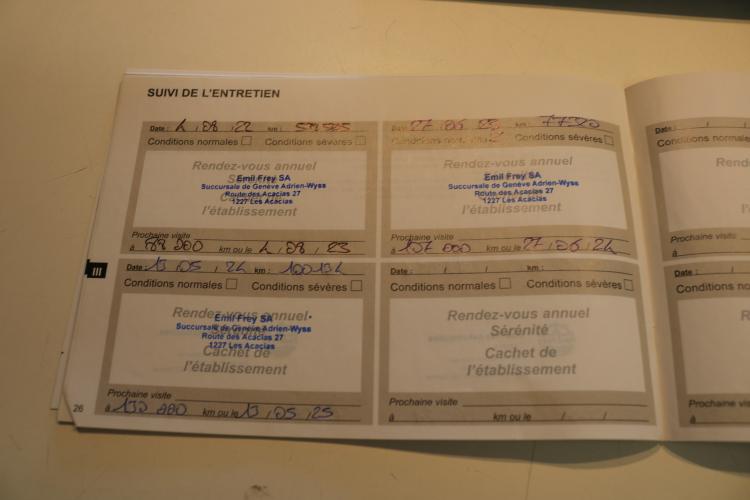 SUIVI DE L'ENTRETIEN
Date : 4 , 08 , 22 km :
Conditions normales Conditions sévères
Rendez-vous annuel
Emil Frey SA
Succursale de Genève Adrien-Wyss
Route des Acacias 27
1227 Les Acacias
l'établissement
Prochaine visite
à 88 000 km ou le 4 , 08 , 23
Date : 27 , 06 , 23 km :
Conditions sévères
Rendez-vous annuel
Emil Frey SA
Succursale de Genève Adrien-Wyss
Route des Acacias 27
1227 Les Acacias
l'établissement
Prochaine visite
à 107 000 km ou le 27 , 06 , 24
Date :
Condition
Prochaine visite
à
III
Date : 13 , 05 , 24 km : 100134
Conditions normales Conditions sévères
Rendez-vous annuel
Emil Frey SA
Succursale de Genève Adrien-Wyss
Route des Acacias 27
1227 Les Acacias
Cachet de
l'établissement
Prochaine visite
à 130 000 km ou le 13 , 05 , 25
Date : / / km :
Conditions normales Conditions sévères
Rendez-vous annuel
Sérénité
Cachet de
l'établissement
Prochaine visite
à km ou le / /
Date : /
Conditions no
R
Prochaine vis
à
26